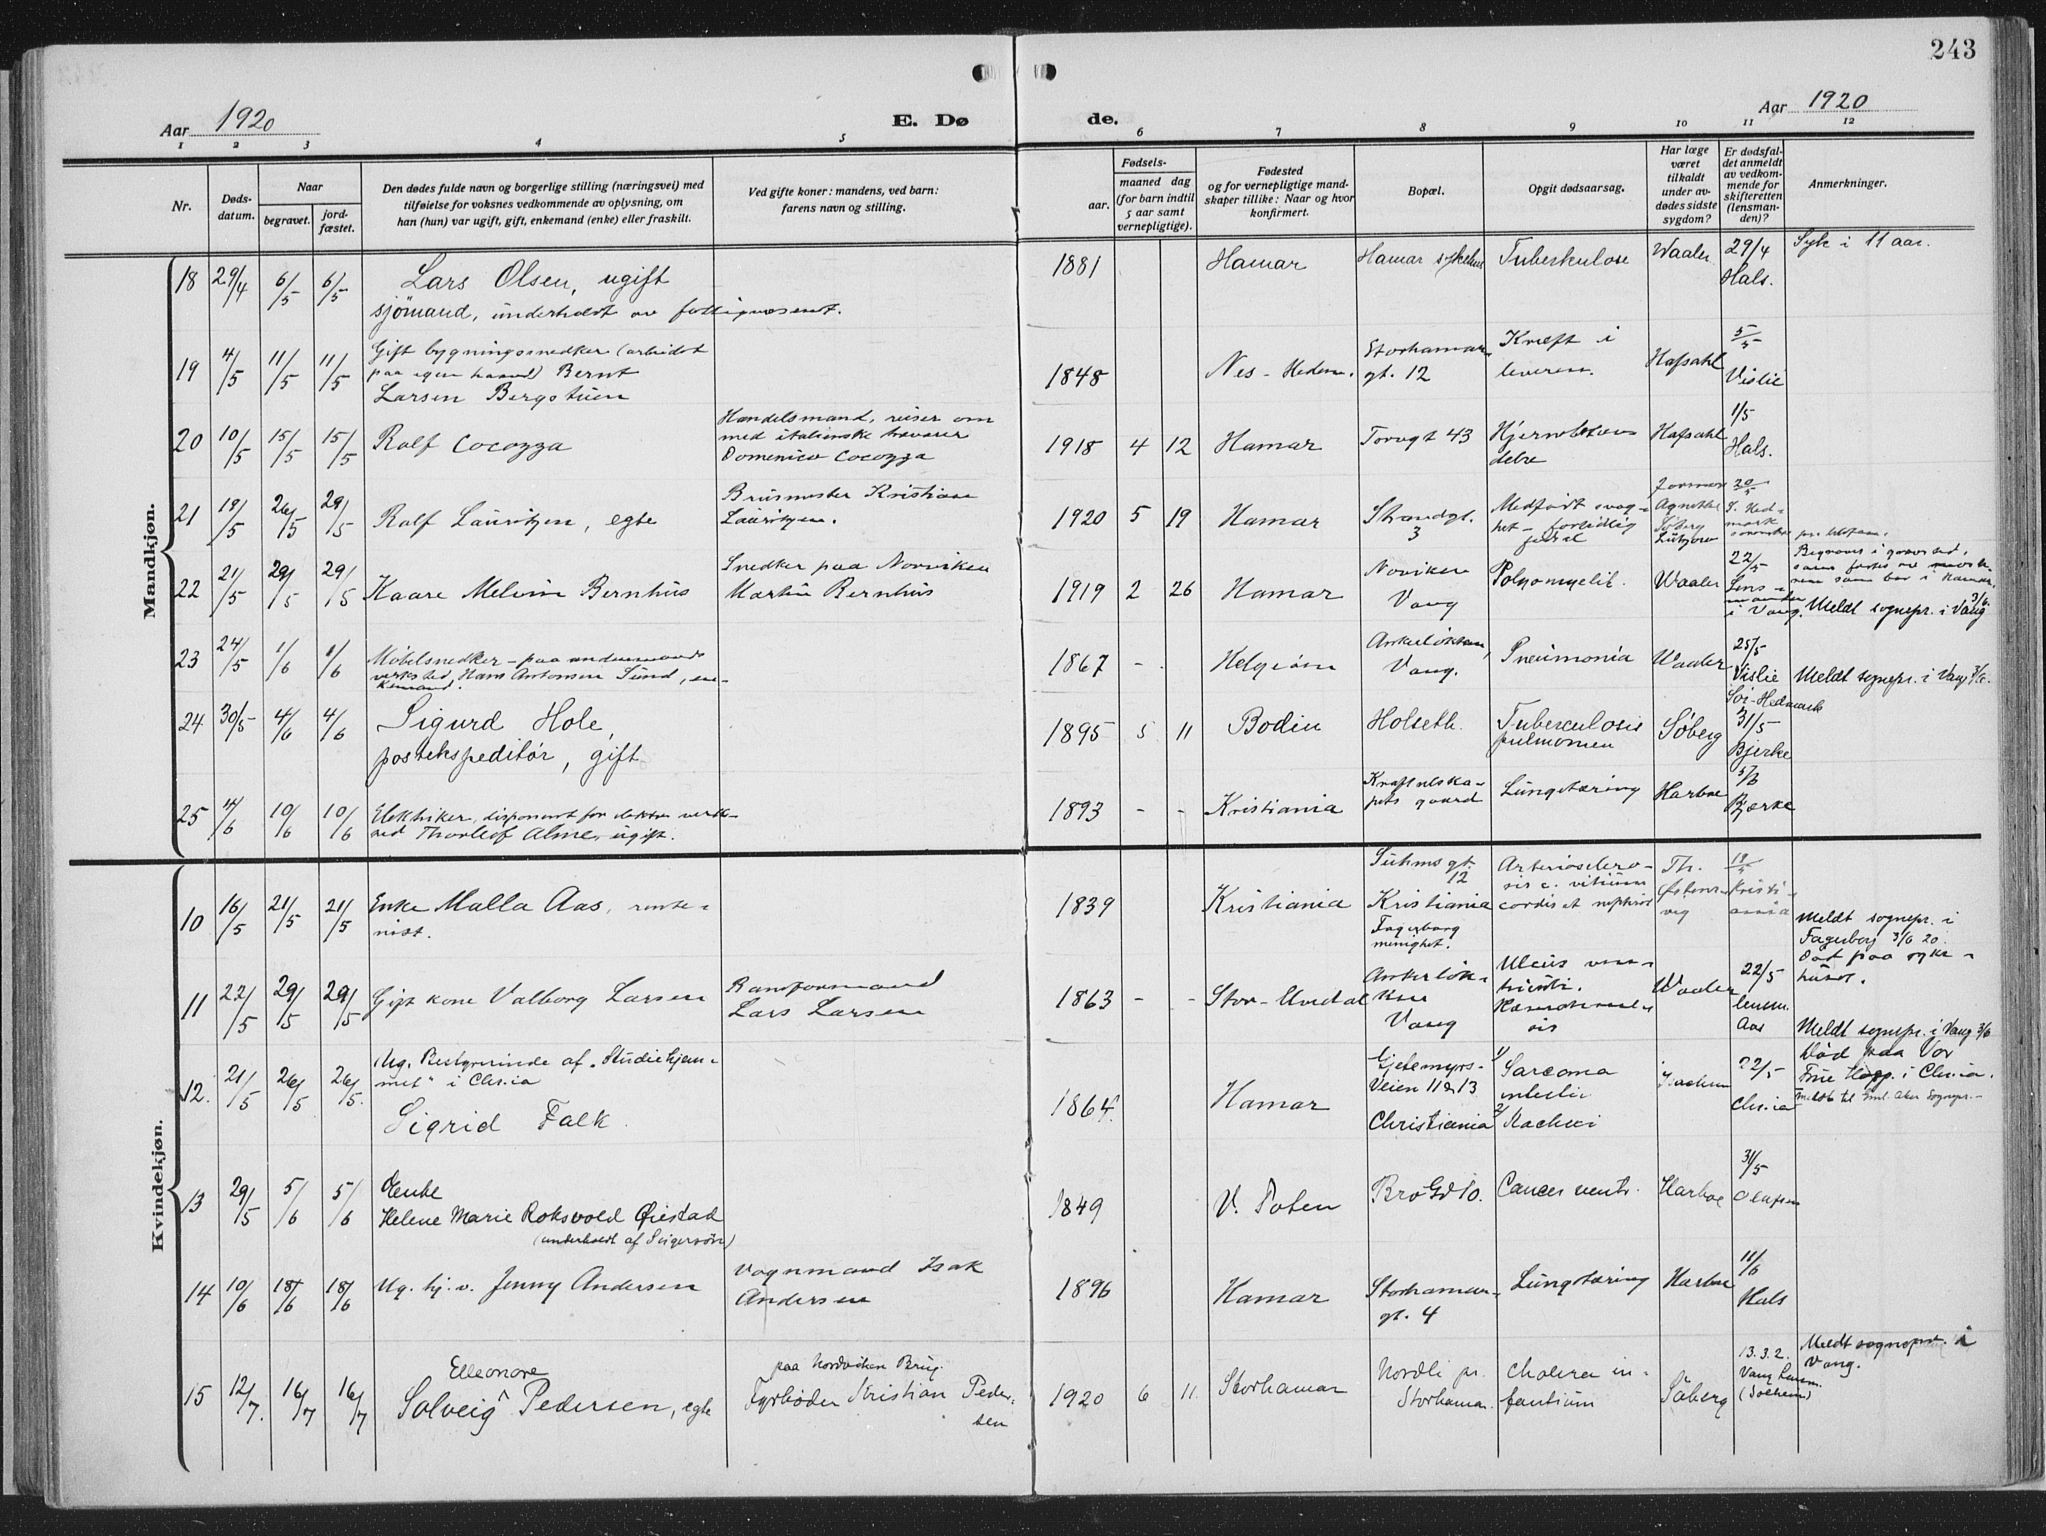 243
Aar 1920
E. Dø
de.
Aar 1920
1 2 3 4 5 6 7 8 9 10 11 12
Nr.
Døds-
datum.
Naar
begravet.
jord-
fæstet.
Den dødes fulde navn og borgerlige stilling (næringsvei) med
tilføielse for voksnes vedkommende av oplysning, om
han (hun) var ugift, gift, enkemand (enke) eller fraskilt.
Ved gifte koner: mandens, ved barn:
farens navn og stilling.
Fødsels-
aar.
maaned dag
(for barn indtil
5 aar samt
vernepligtige).
Fødested
og for vernepligtige mand-
skaper tillike: Naar og hvor
konfirmert.
Bopæl.
Opgit dødsaarsag.
Har læge
været
tilkaldt
under av-
dødes sidste
sygdom?
Er dødsfal-
det anmeldt
av vedkom-
mende for
skifteretten
(lensman-
den)?
Anmerkninger.
Mandkjøn.
18 29/4 6/5 6/5 Lars Olsen, ugift
sjømand, underholdt av fattigvæsenet.
1881 Hamar Hamar sykehus Tuberkulose Waaler 29/4
Hals.
Syk i 11 aar.
19 4/5 11/5 11/5 Gift bygningssnedker (arbeidet
paa egen haand) Bernt
Larsen Bergstuen
1848 Nes - Hedem. Storhamar
gt. 12
Kræft i
leveren.
Hafsahl 5/5
Vislie
20 10/5 15/5 15/5 Rolf Cocozza
Handelsmand, reiser om
med italienske
Domenico Cocozza
1918 4 12 Hamar Torvgt 43
Hafsahl 1/5
Hals.
21 19/5 26/5 29/5 Rolf Lauritzen, egte
Kristian
Lauritzen.
1920 5 19 Hamar Strandgt.
3
Medfødt svag-
het - fortidlig
Jormor
Agnethe
20/5
22 21/5 29/5 29/5 Kaare Melvin Bernhus
Snedker paa Norviken
Martin Bernhus
1919 2 26 Hamar Noviken
Vang
Polyomyelit. Waaler 22/5
Lens-
i Vang.
Begraves i gravsted,
Meldt sognepr. i Vang 3/6.
23 24/5 1/6 1/6 Møbelsnedker - paa andenmands
verksted, Hans Antonsen Sund, en-
kemand.
1867 - Helgøen Ankerløkken,
Vang.
Pneumonia Waaler 25/5
Vislie
Sør-Hedmark
Meldt sognepr. i Vang 3/6.
24 30/5 4/6 4/6 Sigurd Hole,
postekspeditør, gift
1895 5 11 Bodin Holseth. Tuberculosis
pulmonum
Søberg 31/5
Bjerke
25 4/6 10/6 10/6 Elektriker, disponent for elektr. verk-
sted Thorleif Alme, ugift.
1893 - - Kristiania Kraftselska-
pets gaard
Lungetæring Harboe 5/6
Bjerke
Kvindekjøn.
10 16/5 21/5 21/5 Enke Malla Aas, rente-
nist.
1839 Kristiania Suhms gt.
12
Kristiania
Fagerborg
menighet.
Arteriosclero-
sis c. vitium
cordis et
Th.
18/5
Kristi-
ania
Meldt sognepr. i
Fagerborg 3/6 20.
11 22/5 29/5 29/5 Gift kone Valborg Larsen
Baneformand
Lars Larsen
1863 - - Stor-Elvedal Ankerløk-
ken
Vang
Ulcus ven-
triculi.
Waaler 22/5
lensm.
Aas
Død paa syke-
huset.
Meldt sognepr. i Vang 3/6
12. 21/5 26/5 26/5. Ug. Bestyrerinde af "Studiehjem-
met" i Chr.ia
Sigrid Falk.
1864. Hamar Gjetemyrs-
Veien 11 & 13
Christiania
1/ Sarcoma
2/ Kachexi
22/5
Chr.ia
Død paa Vor
Frue Hosp. i Chr.ia.
13 29/5 5/6 5/6 Enke
Helene Marie Roksvold Øiestad
(underholdt af Svigersøn)
1849 V. Toten Bro Gd 10. Cancer ventr. Harboe 31/5
Olufsen
14 10/6 18/6 18/6 Ug. hj. v. Jenny Andersen
Vognmand Isak
Andersen
1896 Hamar Storhamar-
gt. 4
Lungetæring Harboe 11/6
Hals
15 12/7. 16/7 16/7 Elleonore
Solveig ^ Pedersen, egte
paa Nordviken Brug.
Fyrbøder Kristian Peder-
sen
1920 6 11 Storhamar Nordli pr.
Storhamar.
Cholera in-
fantium
Søberg 13.3.2.
Vang Lensm.
(Solheim)
Meldt sognepr. i
Vang.